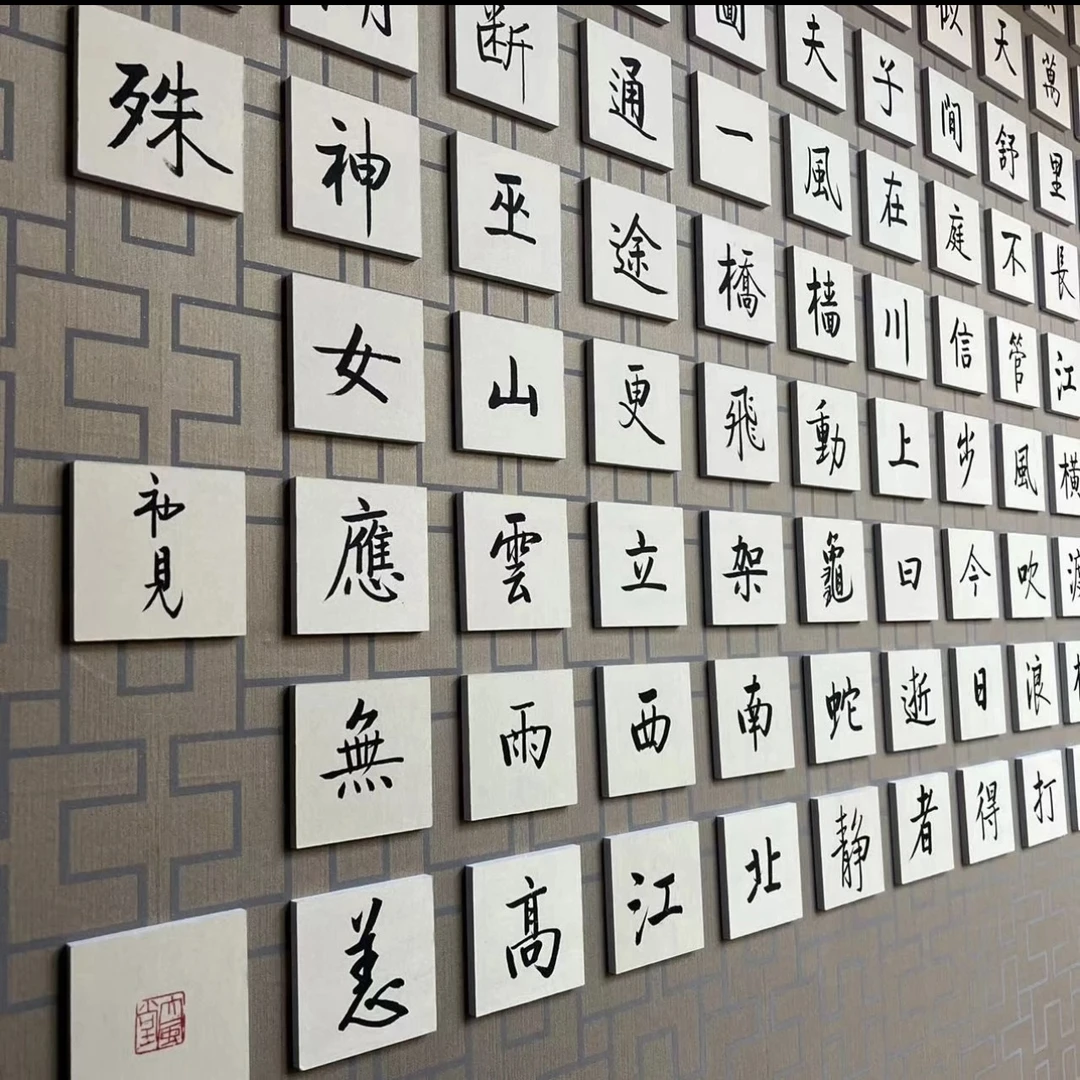 萬里長江横渡
天舒不管風吹浪打
似間庭信步今日得
子在川上曰逝者
夫風檣動龜蛇静
一橋飛架南北
通途更立西江
断巫山雲雨高
神女應無恙
殊
見